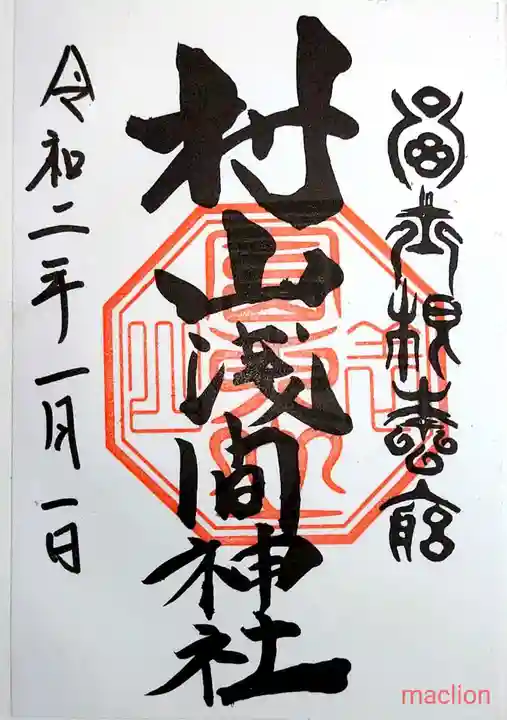 冨士根本宮
村山浅間神社
令和二年一月一日
maclion